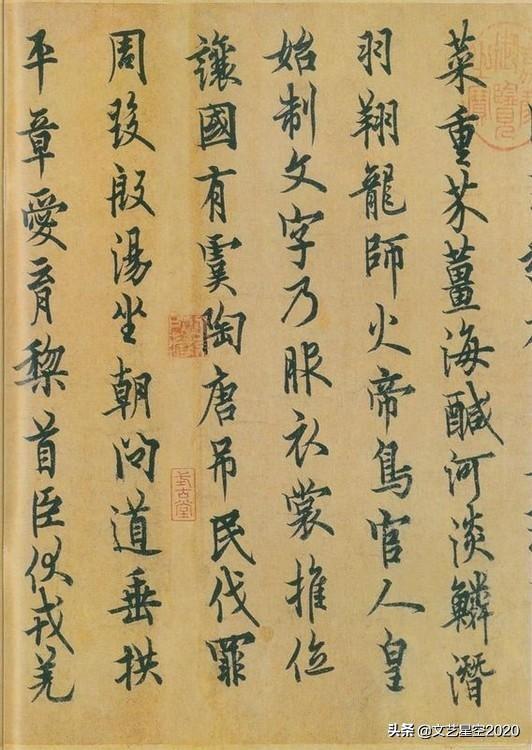 菜重芥薑海醎河淡鱗潛
羽翔龍師火帝鳥官人皇
始制文字乃服衣裳推位
讓國有虞陶唐吊民伐罪
周發殷湯坐朝問道垂拱
平章愛育黎首臣伏戎羌
式古堂
头条 @文艺星空2020